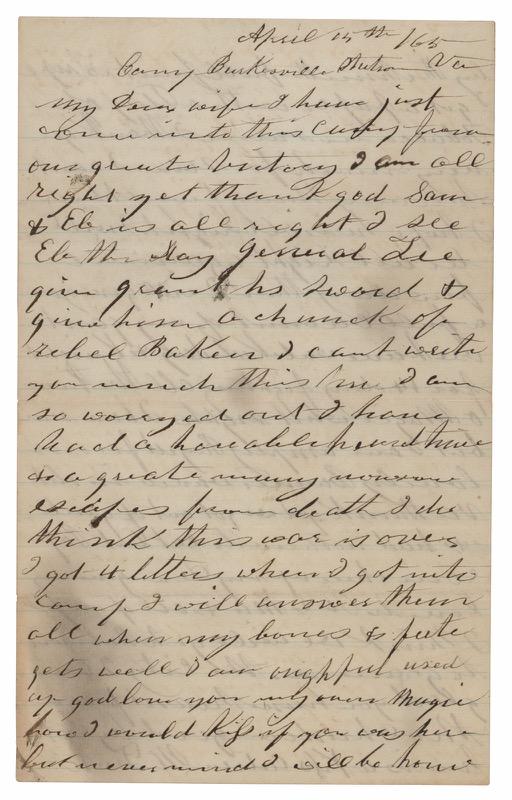 April 15th /65
Camp Burkesville Station Va
My Dear wife I have just
come into this Camp from
our greate Victory I am all
right yet thank god Sam
& Eb is all right I see
Eb the day General Lee
give grant his sword &
give him a chunck of
rebel Baken I cant write
you much this time I am
so worryed out I have
had a horable hard time
& a greate many narrow
escapes from death I do
think this war is over
I got 4 letters when I got into
camp I will answer them
all when my bones & feete
gets well I am oughful used
up god love you my own Magie
how I would kiss if you was here
but never mind I will be home